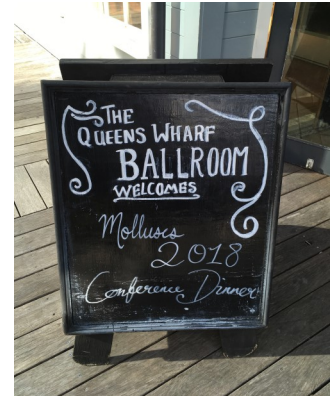 THE
QUEENS WHARF
BALLROOM
WELCOMES
Molluscs
2018
Conference Dinner